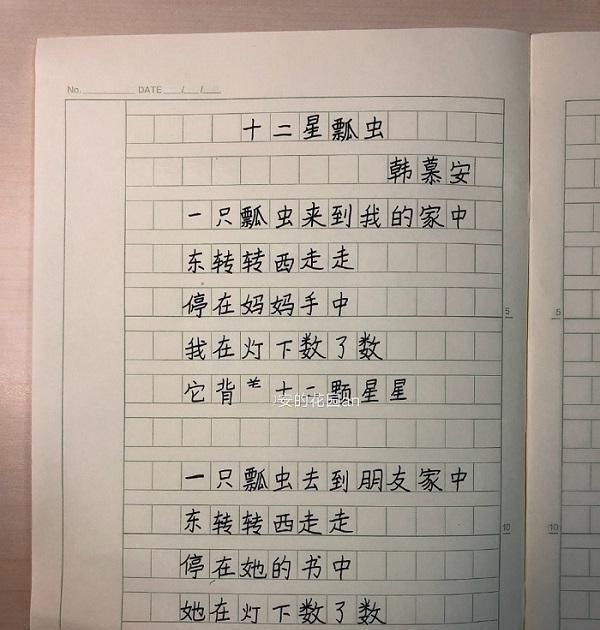 No. DATE / /
十二星瓢虫
韩慕安
一只瓢虫来到我的家中
东转转西走走
停在妈妈手中
5
5
我在灯下数了数
它背 十二颗星星
安的花园an
一只瓢虫去到朋友家中
东转转西走走
10
10
停在她的书中
她在灯下数了数